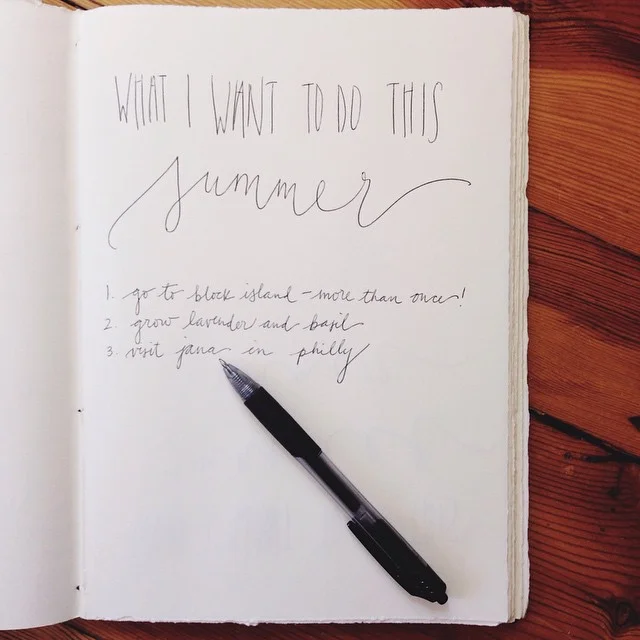 WHAT I WANT TO DO THIS
summer
1. go to block island - more than once!
2. grow lavender and basil
3. visit jana in philly